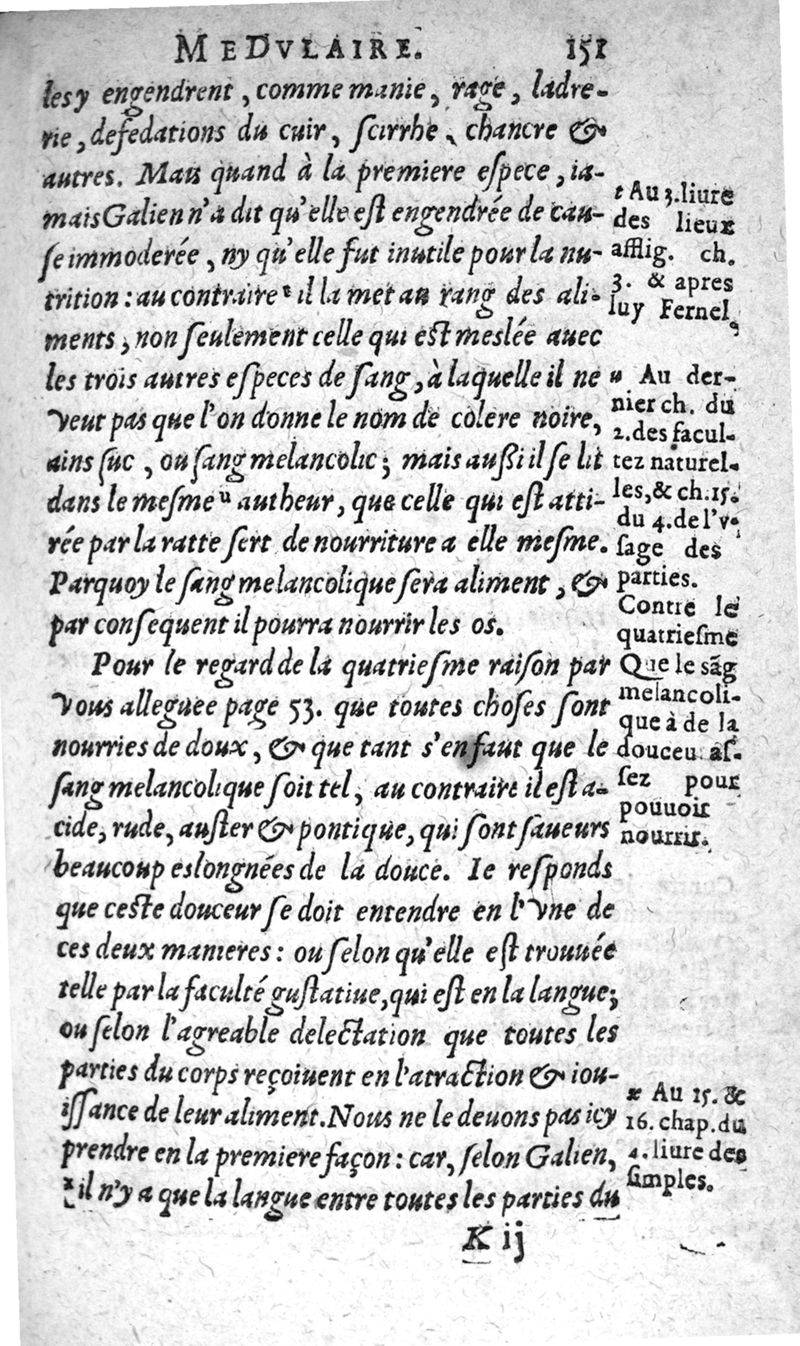 MEDVLAIRE. 151
les y engendrent, comme manie, rage, ladre-
rie, defedations du cuir, scirrhe, chancre &
autres. Mais quand à la premiere espece, ia-
mais Galien n'a dit qu'elle est engendrée de cau-
se immoderée, ny qu'elle fut inutile pour la nu-
trition : au contraire t il la met au rang des ali-
ments, non seulement celle qui est meslée auec
les trois autres especes de sang, à laquelle il ne
veut pas que l'on donne le nom de colere noire,
ains suc, ou sang melancolic; mais aussi il se lit
dans le mesme u autheur, que celle qui est atti-
rée par la ratte sert de nourriture a elle mesme.
Parquoy le sang melancolique sera aliment, &
par consequent il pourra nourrir les os.
Pour le regard de la quatriesme raison par
vous alleguee page 53. que toutes choses sont
nourries de doux, & que tant s'en faut que le
sang melancolique soit tel, au contraire il est a-
cide, rude, auster & pontique, qui sont saueurs
beaucoup eslongnées de la douce. Ie responds
que ceste douceur se doit entendre en l'vne de
ces deux manieres : ou selon qu'elle est trouuée
telle par la faculté gustatiue, qui est en la langue;
ou selon l'agreable delectation que toutes les
parties du corps reçoiuent en l'atraction & iou-
issance de leur aliment. Nous ne le deuons pas icy
prendre en la premiere façon : car, selon Galien,
x il n'y a que la langue entre toutes les parties du
K ij
t Au 3. liure
des lieux
afflig. ch.
3. & apres
luy Fernel,
u Au der-
nier ch. du
2. des facul-
tez naturel-
les, & ch. 15.
du 4. de l'v-
sage des
parties.
Contre le
quatriesme
Que le sãg
melancoli-
que à de la
douceu as-
sez pour
pouuoir
nourrir.
x Au 15. &
16. chap. du
4. liure des
simples.